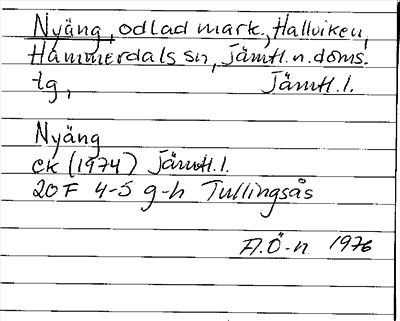 Nyäng, odlad mark., Hallviken,
Hammerdals sn, Jämtl. n. doms.
tg, Jämtl. l.
Nyäng
ek (1974) Jämtl. l.
20 F 4-5 g-h Tullingsås
A. Ö-n 1976